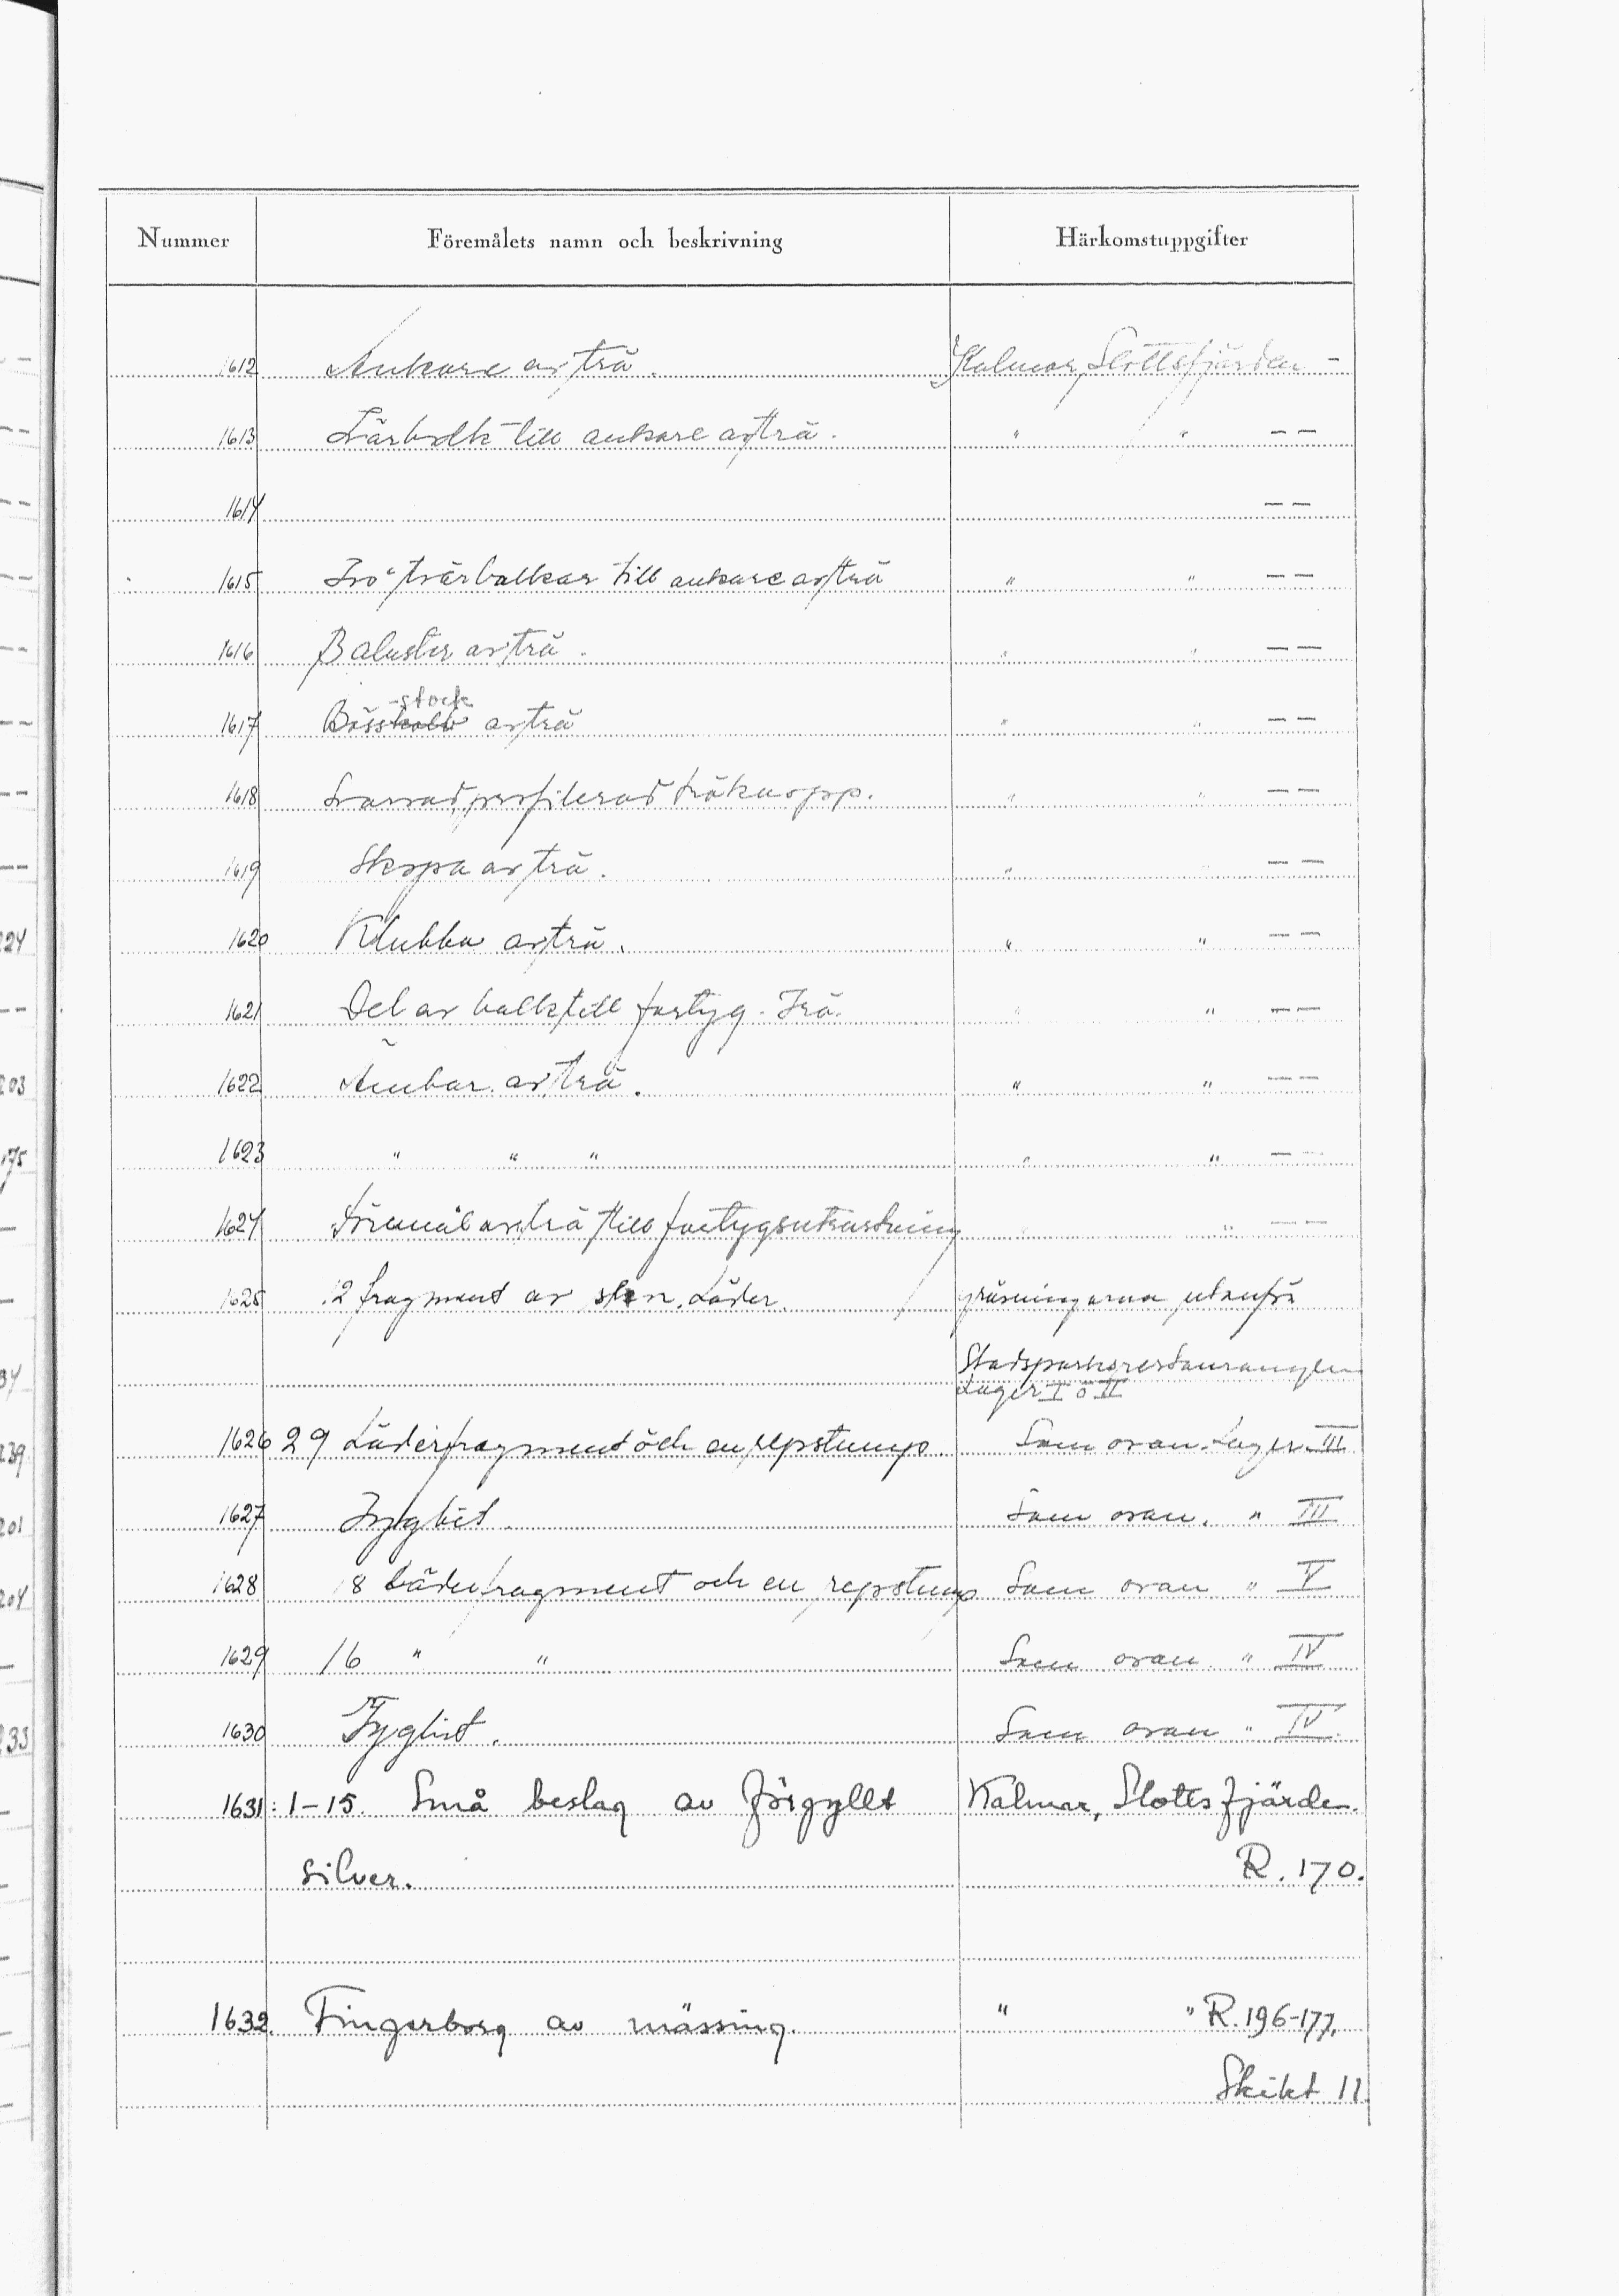 Nummer Föremålets namn och beskrivning Härkomstuppgifter
1612 Ankare av trä. Kalmar, Slottsfjärden –
1613 Tvärbalk till ankare av trä. " " – –
1614 – –
1615 Två tvärbalkar till ankare av trä " " – –
1616 Baluster av trä. " " – –
-stock
1617 Bösskolv av trä " " – –
1618 Svarvad, profilerad träknopp. " " – –
1619 Skopa av trä. " " – –
1620 Klubba av trä. " " – –
1621 Del av balk till fartyg. Trä. " " – –
1622 Ämbar av trä. " " – –
1623 " " " " " – –
1624 Föremål av trä till fartygsutrustning " – –
1625 12 fragment av sten. Läder. grävningarna utanför
Stadsparksrestaurangen
Lager I o II
1626 29 Läderfragment och en repstump Som ovan. Lager III
1627 Tygbit. Som ovan. " III
1628 18 Läderfragment och en repstump Som ovan " V
1629 16 " " Som ovan. " IV
1630 Tygbit. Som ovan " IV
1631: 1-15. Små beslag av förgyllt Kalmar, Slottsfjärden.
silver. R. 170.
1632. Fingerborg av mässing. " " R. 196-177.
Skikt 11.
24
203
175
34
239
201
204
233